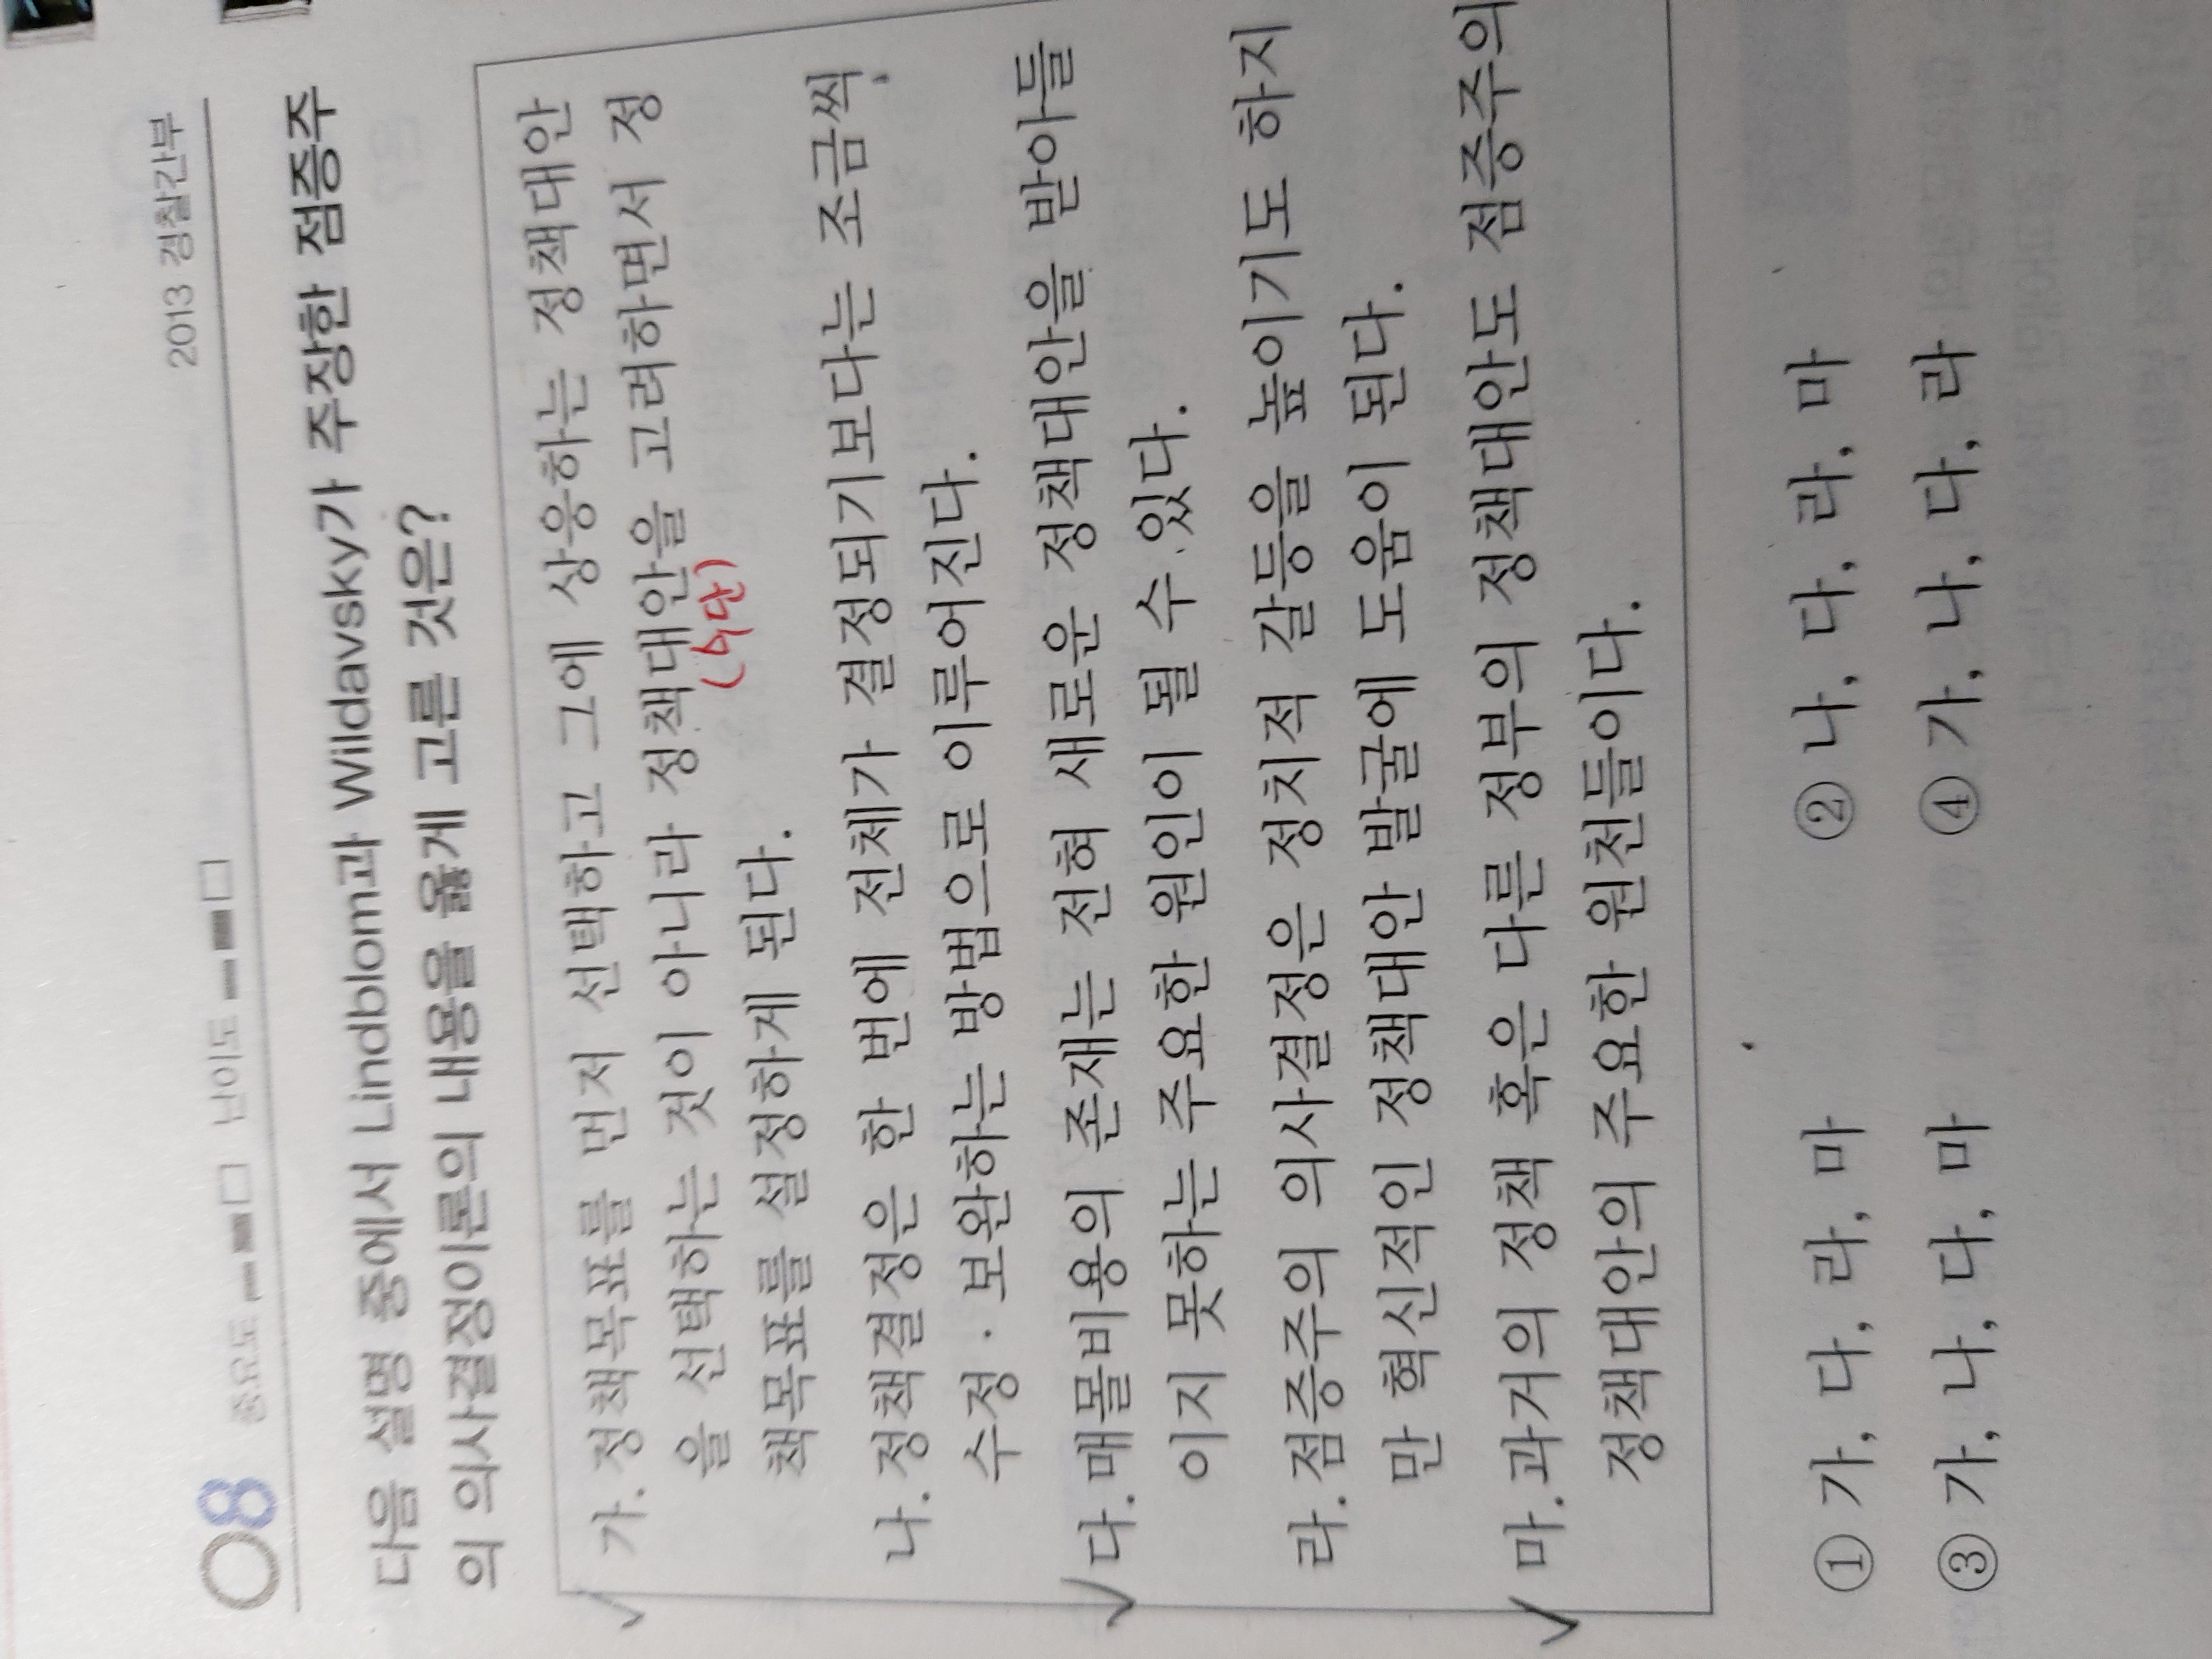 08 중요도 난이도 2013 경찰간부
다음 설명 중에서 Lindblom과 Wildavsky가 주장한 점증주
의 의사결정이론의 내용을 옳게 고른 것은?
가. 정책목표를 먼저 선택하고 그에 상응하는 정책대안
을 선택하는 것이 아니라 정책대안을 고려하면서 정
(수단)
책목표를 설정하게 된다.
나. 정책결정은 한 번에 전체가 결정되기보다는 조금씩
수정·보완하는 방법으로 이루어진다.
다. 매몰비용의 존재는 전혀 새로운 정책대안을 받아들
이지 못하는 주요한 원인이 될 수 있다.
라. 점증주의 의사결정은 정치적 갈등을 높이기도 하지
만 혁신적인 정책대안 발굴에 도움이 된다.
마. 과거의 정책 혹은 다른 정부의 정책대안도 점증주의
정책대안의 주요한 원천들이다.
① 가, 다, 라, 마 ② 나, 다, 라, 마
③ 가, 나, 다, 마 ④ 가, 나, 다, 라